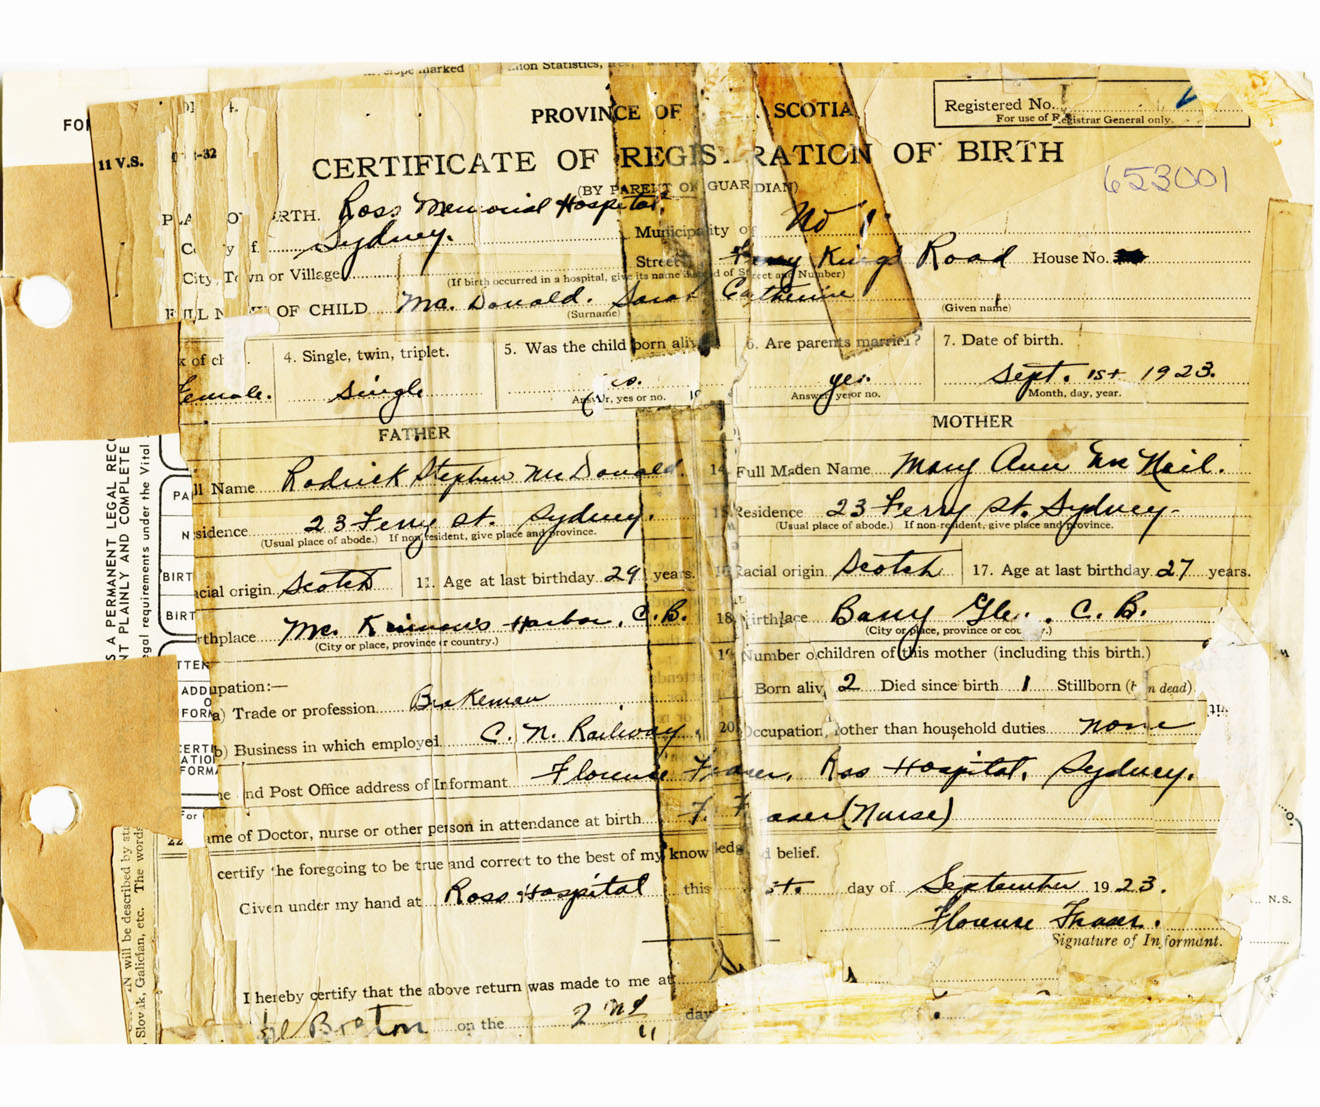 envelope marked
tion Statistics,
FOR
PROVINCE OF SCOTIA
Registered No.
For use of Registrar General only.
11 V.S. -32
CERTIFICATE OF REGISTRATION OF BIRTH
653001
(BY PARENT OR GUARDIAN)
PLA OF BIRTH. Ross Memorial Hospital.
No 1
County of Sydney. Municipality of
Street Kings Road House No.
City, Town or Village
(If birth occurred in a hospital, give its name instead of Street and Number)
FULL NAME OF CHILD Mac Donald. Sarah Catherine
(Surname) (Given name)
x of ch 4. Single, twin, triplet. 5. Was the child born aliv 6. Are parents married? 7. Date of birth.
Female. Single yes. yes. Sept. 1st 1923.
Answer, yes or no. Answer yes or no. Month, day, year.
FATHER MOTHER
ll Name Rodrick Stephen McDonald 14 Full Maiden Name Mary Ann Mc Neil.
sidence 23 Ferry St. Sydney. 15 Residence 23 Ferry St. Sydney-
(Usual place of abode.) If non resident, give place and province. (Usual place of abode.) If non-resident, give place and province.
acial origin Scotch 11. Age at last birthday 29 years. Racial origin Scotch 17. Age at last birthday 27 years.
rthplace Mc. Kinnons Harbor, C.B. 18 Birthplace Barry Gle C.B.
(City or place, province or country.) (City or place, province or cou .)
19 Number of children of this mother (including this birth.)
upation:—
Born aliv 2 Died since birth 1 Stillborn (b n dead)
a) Trade or profession Brakeman
20 Occupation, other than household duties none
b) Business in which employed C. N. Railway
me and Post Office address of Informant Florence Fraser, Ross Hospital, Sydney.
22 ame of Doctor, nurse or other person in attendance at birth F. Fraser (Nurse)
certify the foregoing to be true and correct to the best of my knowledg d belief.
Given under my hand at Ross Hospital this st. day of September 1923.
Florence Fraser.
Signature of Informant.
I hereby certify that the above return was made to me at
Breton on the 2nd day
S A PERMANENT LEGAL RECO
NT PLAINLY AND COMPLETE
egal requirements under the Vital
PA
N
BIRT
BIRT
TTEN
ADD
O
FORM
CERTI
ATIO
FORMA
For
N.S.
N will be described by sta
Slovak, Galician, etc. The words